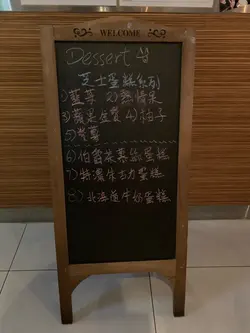 WELCOME
Dessert
芝士蛋糕系列
1) 藍莓 2) 熱情果
3) 4) 柚子
5)
6) 伯爵茶蛋糕
7) 特濃朱古力蛋糕
8) 北海道牛奶蛋糕